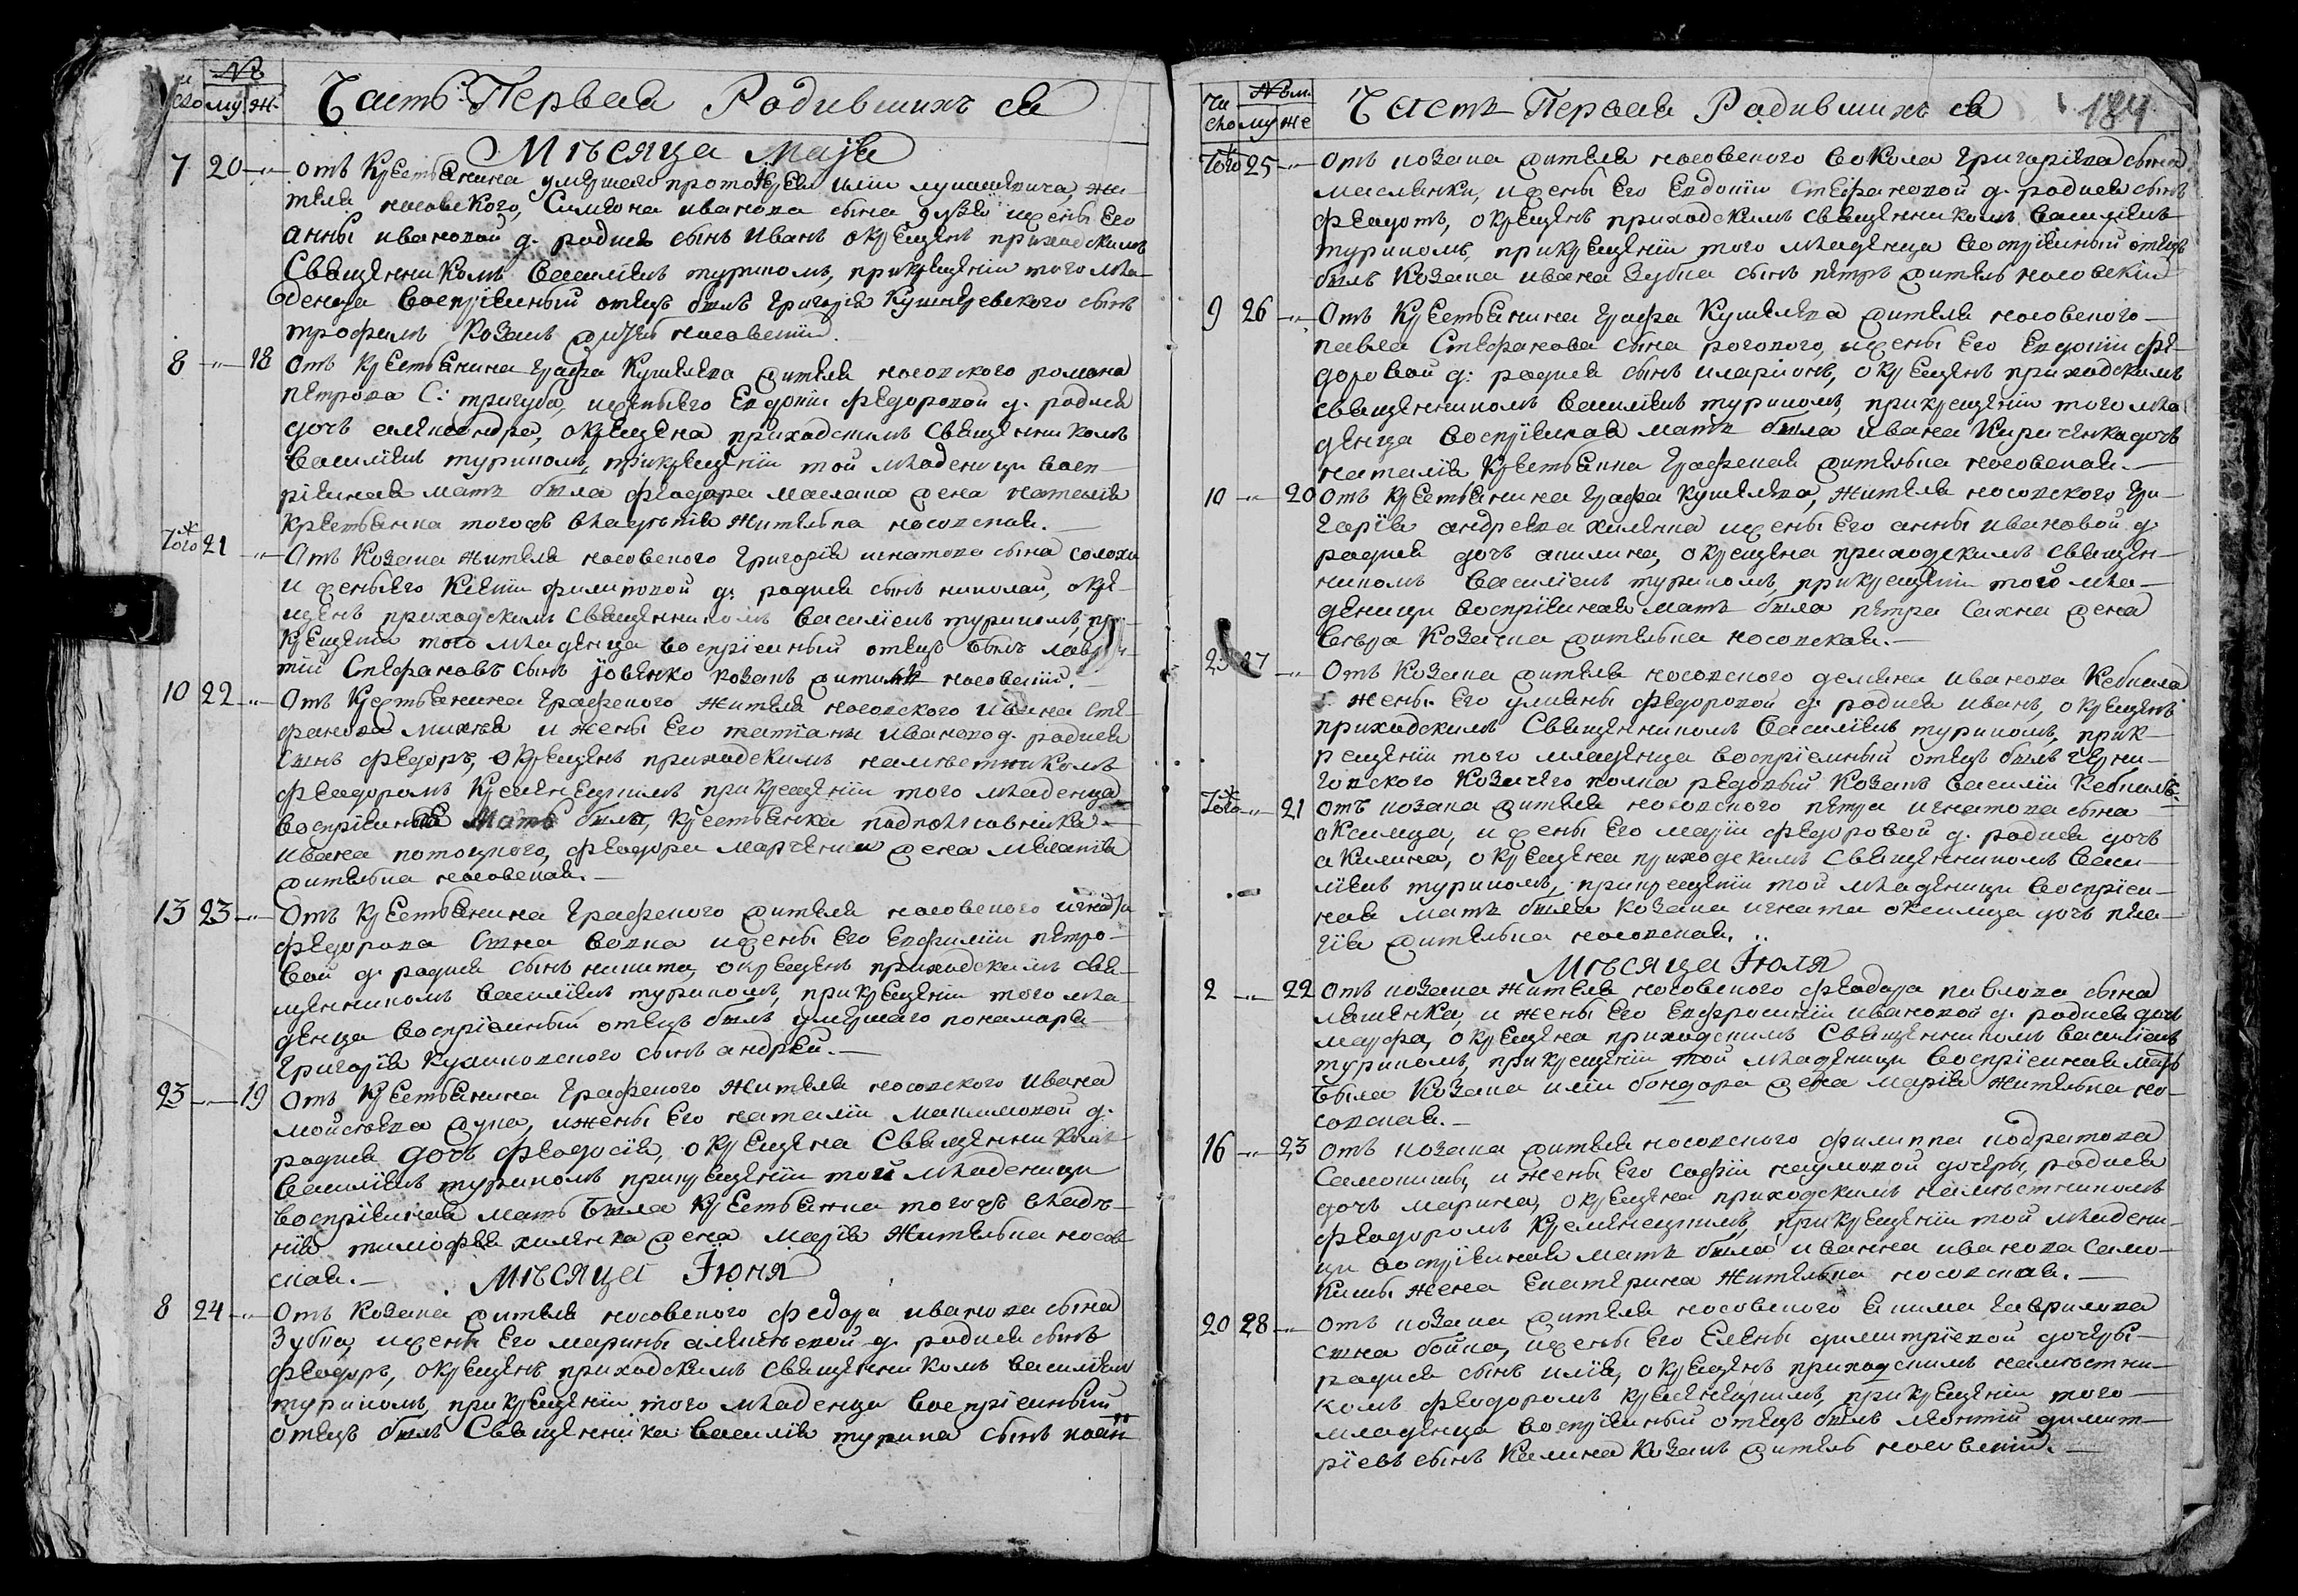 №
число му. ж. Часть Первая Родившихъ ся
Мѣсяца Маія
7 20 „ отъ Крестьянина умершаго протоіерея иліи жи-
теля носовского, Симеона иванова сына и жены Его
анны ивановой д. родися сынъ иванъ окрещенъ приходскимъ
Священникомъ василіемъ турипомъ, прикрещеніи того мла-
денца воспріемный отецъ былъ григорія Кушнеревского сынъ
трофимъ козакъ житель носовскій.
8 „ 18 отъ Крестьянина графа Кушелева жителя носовского романа
петрова С: тригуба, и жены Его Евдокіи федоровой д. родися
дочь александра, окрещена приходскимъ Священникомъ
василіемъ турипомъ, прикрещеніи той младеницы восп-
ріемная мать была феодора маслака жена наталія
крестьянка того ж владѣнія жителька носовская.
Того ж 21 „ Отъ Козака жителя носовского григорія игнатова сына солохи
и жены Его Ксеніи филиповой д. родися сынъ николай, окре-
щенъ приходскимъ Священникомъ василіемъ турипомъ, при
крещеніи того младенца воспріемный отецъ былъ
тій Стефановъ сынъ козакъ житель носовскій.
10 22 „ Отъ Крестьянина графского жителя носовского ивана сте-
фанова и жены Его татіаны иванов. д. родися
сынъ федоръ, окрещенъ приходскимъ намѣстникомъ
феодоромъ Кременецкимъ прикрещеніи того младенца
воспріемная мать была, крестьянка подполковника
ивана потоцкого, феодора марченка жена
жителька носовская.
13 23 „ Отъ Крестьянина графского жителя носовского
федорова сына вовка и жены Его Евфиміи петро-
вой д. родися сынъ никита, окрещенъ приходскимъ свя-
щенникомъ василіемъ турипомъ, прикрещеніи того мла-
денца воспріемный отецъ былъ умершаго понамаря
григорія Куликовского сынъ андрей.
23 „ 19 Отъ Крестьянина графского жителя носовского ивана
мойсѣева и жены Его наталіи макимовой д.
родися дочь феодосія, окрещена Священникомъ
василіемъ турипомъ прикрещеніи той младеницы
воспріемная мать была крестьянка того ж владѣ-
нія тимофея хиленка жена марія жителька носов
ская. Мѣсяца Іюня
8 24 „ Отъ Козака жителя носовского федора иванова сына
Зубка, и жены Его марины алексѣевой д. родися сынъ
феодоръ, окрещенъ приходскимъ священникомъ василіемъ
турипомъ, прикрещеніи того младенца воспріемный
отецъ былъ Священника василія турипа сынъ
Чи
сло №м.
му же Часть Первая Родившихъ ся 184
Того ж 25 „ Отъ козака жителя носовского вокола григоріева сына
маслянки, и жены Его Евдокіи Стефановой д. родися сынъ
федотъ, окрещенъ приходскимъ священникомъ василіемъ
турипомъ, прикрещеніи того младенца воспріемный отецъ
былъ Козака ивана Зубка сынъ петръ житель носовскій
9 26 „ Отъ Крестьянина графа Кушелева жителя носовского
павла Стефанова сына рогового, и жены Его Евдокіи фе-
доровой д: родися сынъ иларіонъ, окрещенъ приходскимъ
священникомъ василіемъ турипомъ, прикрещеніи того мла
денца воспріемная мать была ивана Кириченка дочь
наталія крестьянка графская жителька носовская.
10 „ 20 Отъ Крестьянина графа Кушелева, жителя носовского гри-
горія андреева хиленка и жены Его анны ивановой д.
родися дочь акилина, окрещена приходскимъ священ-
никомъ василіемъ турипомъ, прикрещеніи того мла-
деницы воспріемная мать была петра сахна жена
козачка жителька носовская.
23 27 „ Отъ Козака жителя носовского демяна иванова Кебкала
жены Его уляны федоровой д. родися иванъ, окрещенъ
приходскимъ Священникомъ василіемъ турипомъ, прик-
рещеніи того младенца воспріемный отецъ былъ черни-
говского Козачего полка рядовый Козакъ василій Кебкалъ.
Того ж „ 21 отъ козака жителя носовского петра игнатова сына
оксимца, и жены Его маріи федоровой д. родися дочь
акилина, окрещена приходскимъ Священникомъ васи-
ліемъ турипомъ, прикрещеніи той младеницы воспріем-
ная мать была козака игната оксимца дочь пела-
гія жителька носовская.
Мѣсяца Іюля
2 „ 22 Отъ козака жителя носовского феодора павлова сына
ляшенка, и жены Его Евфросиніи ивановой д. родися дочь
марфа, окрещена приходскимъ Священникомъ василіемъ
турипомъ, прикрещеніи той младеницы воспріемная мать
была Козака иліи бондара жена марія жителька но-
совская.
16 „ 23 Отъ козака жителя носовского филиппа кодратова
Самокиши, и жены Его софіи наумовой дочеры, родися
дочь марина, окрещена приходскимъ намѣстникомъ
феодоромъ Кременецкимъ, прикрещеніи той младени-
цы воспріемная мать была иванна иванова само-
киши жена Екатерина жителька носовская.
20 28 „ Отъ козака жителя носовского Якима гаврилова
сына бойка, и жены Его Елены димитріевой дочеры-
родися сынъ илія, окрещенъ приходскимъ намѣстни-
комъ феодоромъ кременецкимъ, прикрещеніи того
младенца воспріемный отецъ былъ леонтій димит-
ріевъ сынъ Калина козакъ житель носовскій.